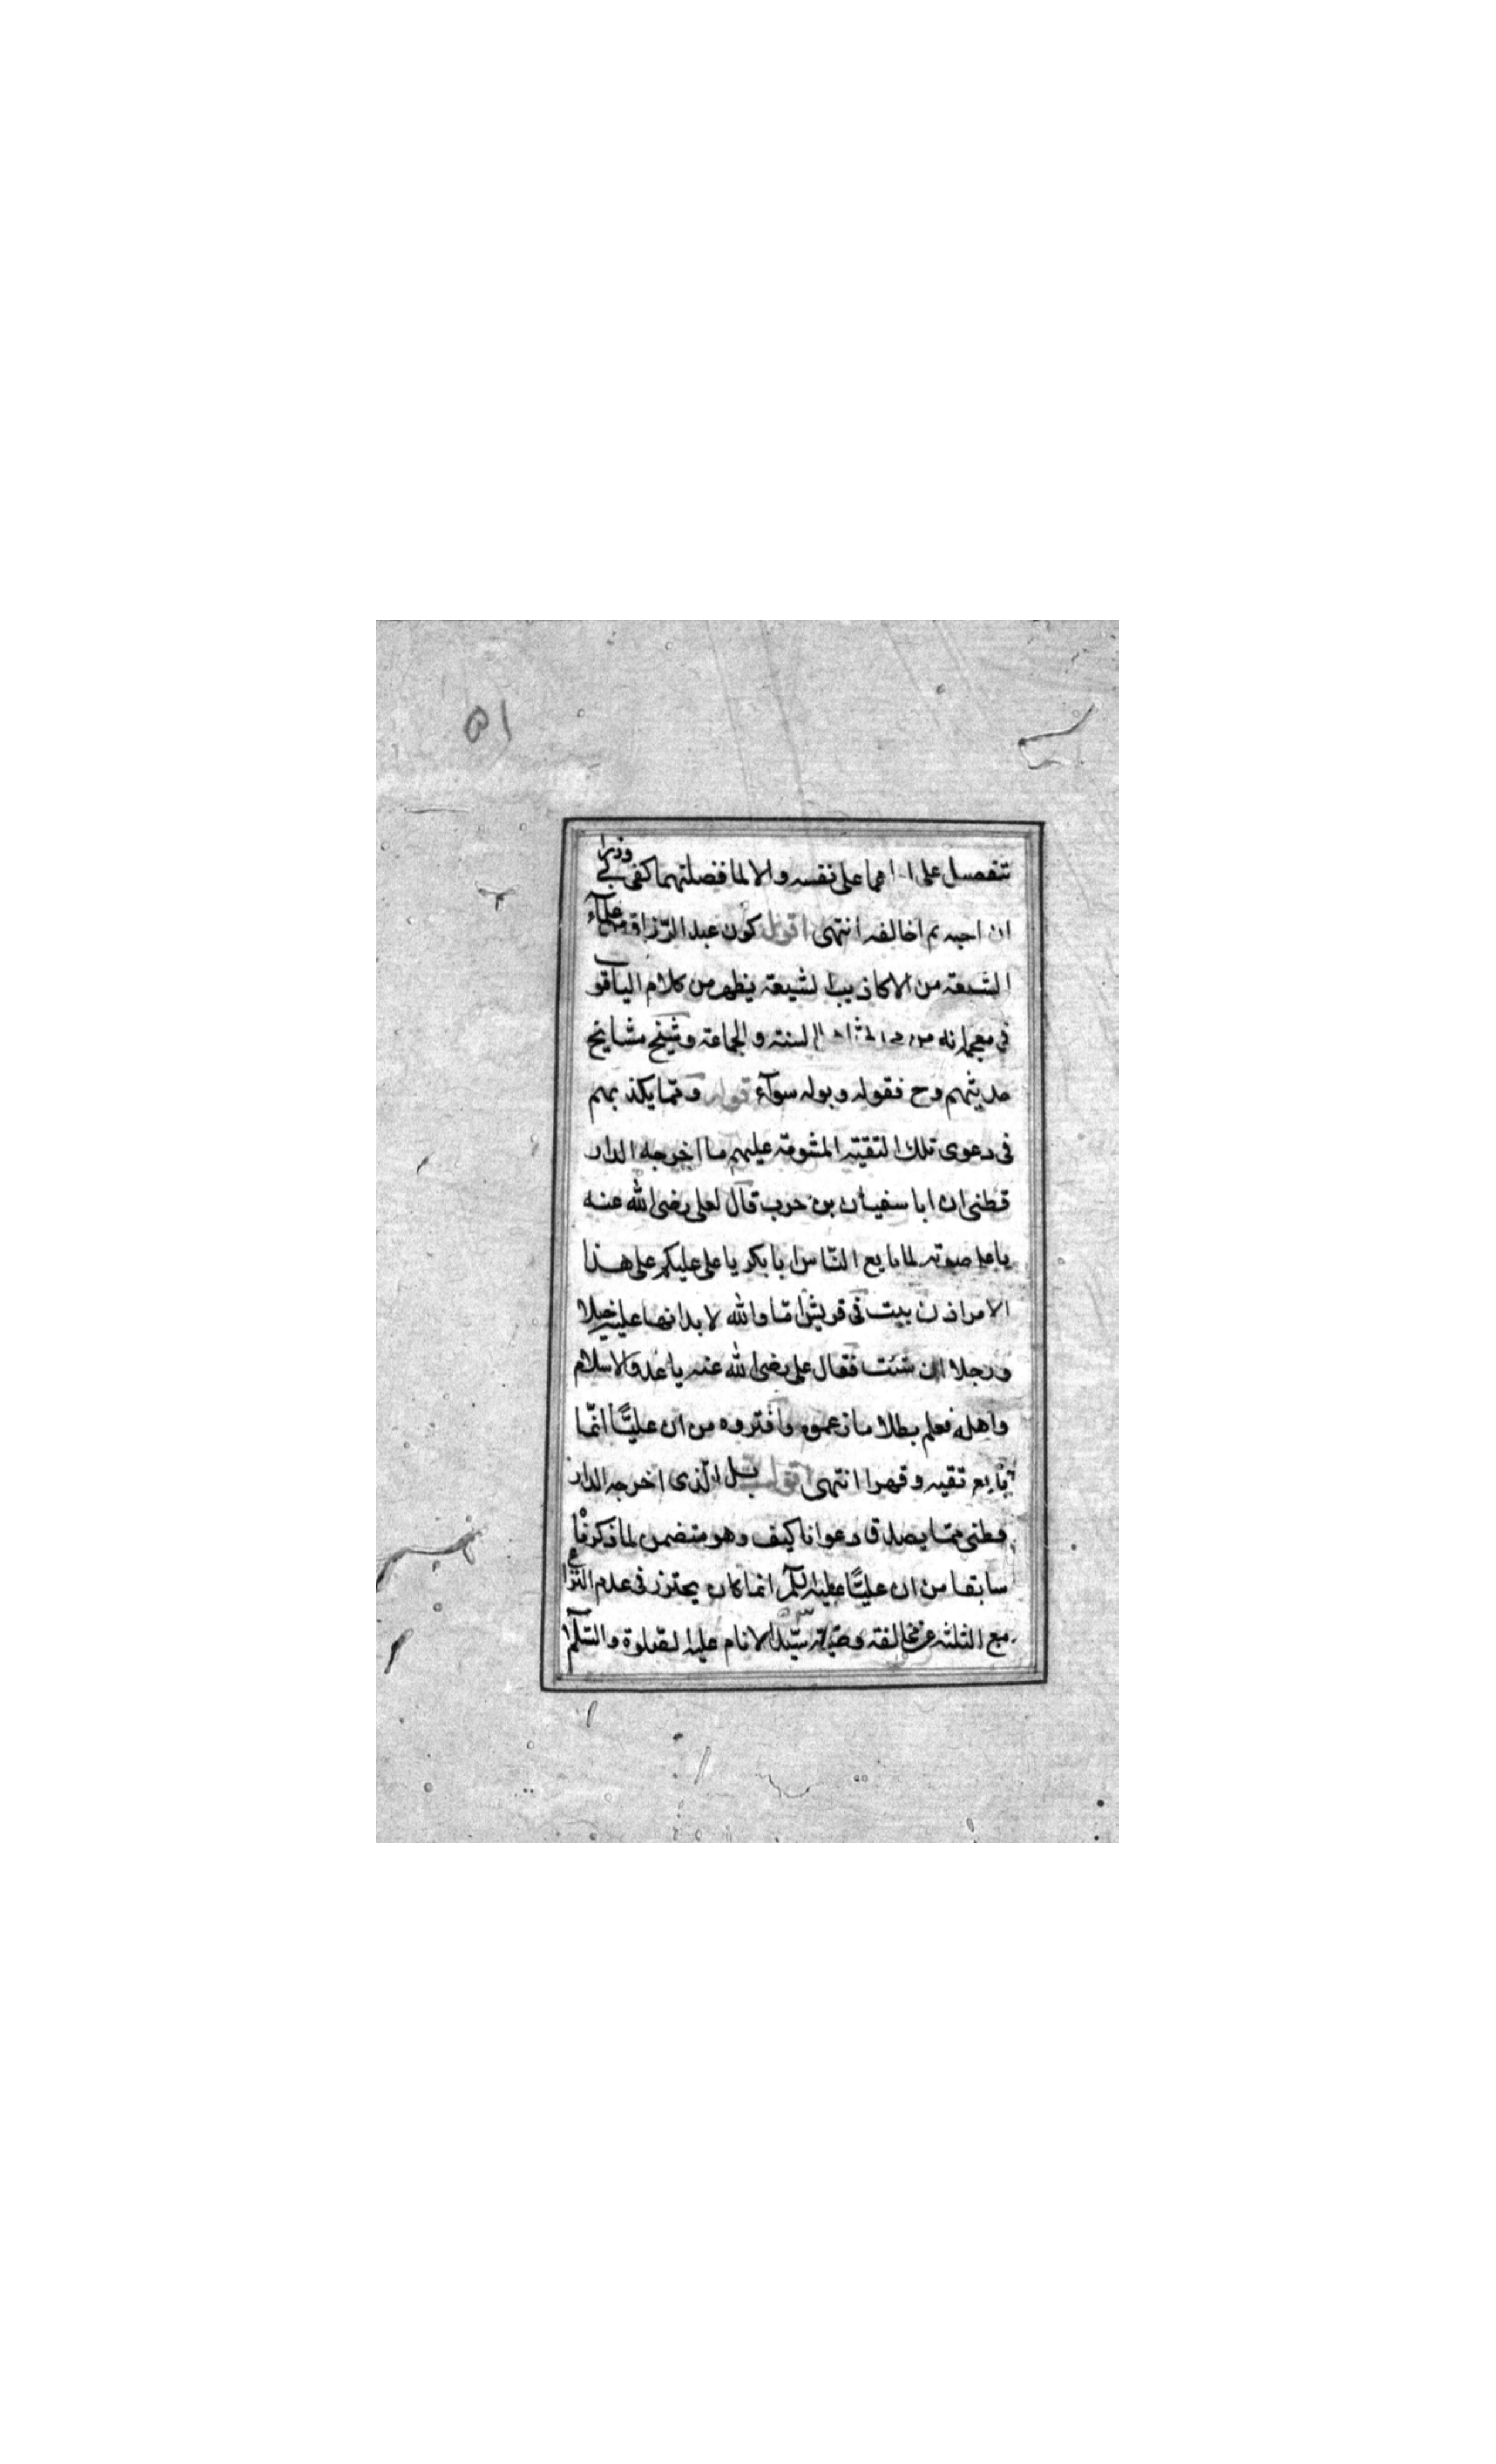 ٥١
بتفضيل على اياهما على نفسه والا لما فضلتهما كفى بى وزرا
ان احبه ثم اخالفه انتهى اقول كون عبد الرزاق من علمآء
الشيعة من الاكاذيب الشيعة يظهر من كلام الياقوب
فى معجمه انه من السنة والجماعة وشيخ مشايخ
حديثهم وح فقوله وبوله سوآء قوله ومما يكذبهم
فى دعوى تلك التقية المشومة عليهم ما اخرجه الدار
قطنى ان ابا سفيان بن حرب قال لعلى رضى الله عنه
باعلا صوته لما بايع الناس ابا بكر يا على غلبكم على هذا
الامر اذن بيت فى قريش اما والله لا بد انها عليه خيلا
ورجلا ان شئت فقال على رضى الله عنه يا عدو الاسلام
واهله فعلم بطلا ما زعموه وافتروه من ان عليًّا انّما
بايع تقيه وقهرا انتهى اقول بل الّذى اخرجه الدار
قطنى ممّا يصدق دعوانا كيف وهو متضمن لما ذكرنا
سابقا من ان عليًّا عليه السلم انما كان يحترز فى عدم النّزاع
مع الثلثه عن مخالفة وصيّة سيّد الانام عليه الصّلوة والسّلم